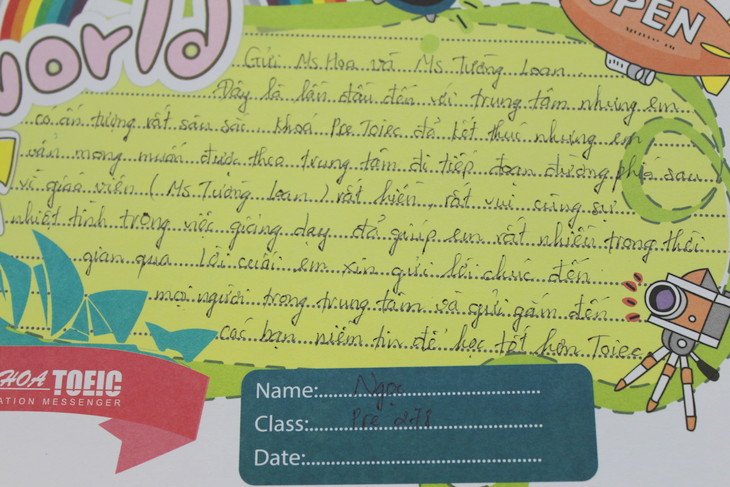 world
OPEN
Gửi Ms. Hoa và Ms Tường Loan.
Đây là lần đầu đến với trung tâm nhưng em
có ấn tượng rất sâu sắc. Khoá Pre Toiec đã kết thúc nhưng em
vẫn mong muốn được theo trung tâm đi tiếp đoạn đường phía sau
vì giáo viên ( Ms. Tường Loan ) rất hiền, rất vui cùng sự
nhiệt tình trong việc giảng dạy đã giúp em rất nhiều trong thời
gian qua. Lời cuối em xin gửi lời chúc đến
mọi người trong trung tâm và gửi gắm đến
các bạn niềm tin để học tốt hơn Toiec.
HOA TOEIC
ATION MESSENGER
Name: Ngọc
Class: Pre
Date: